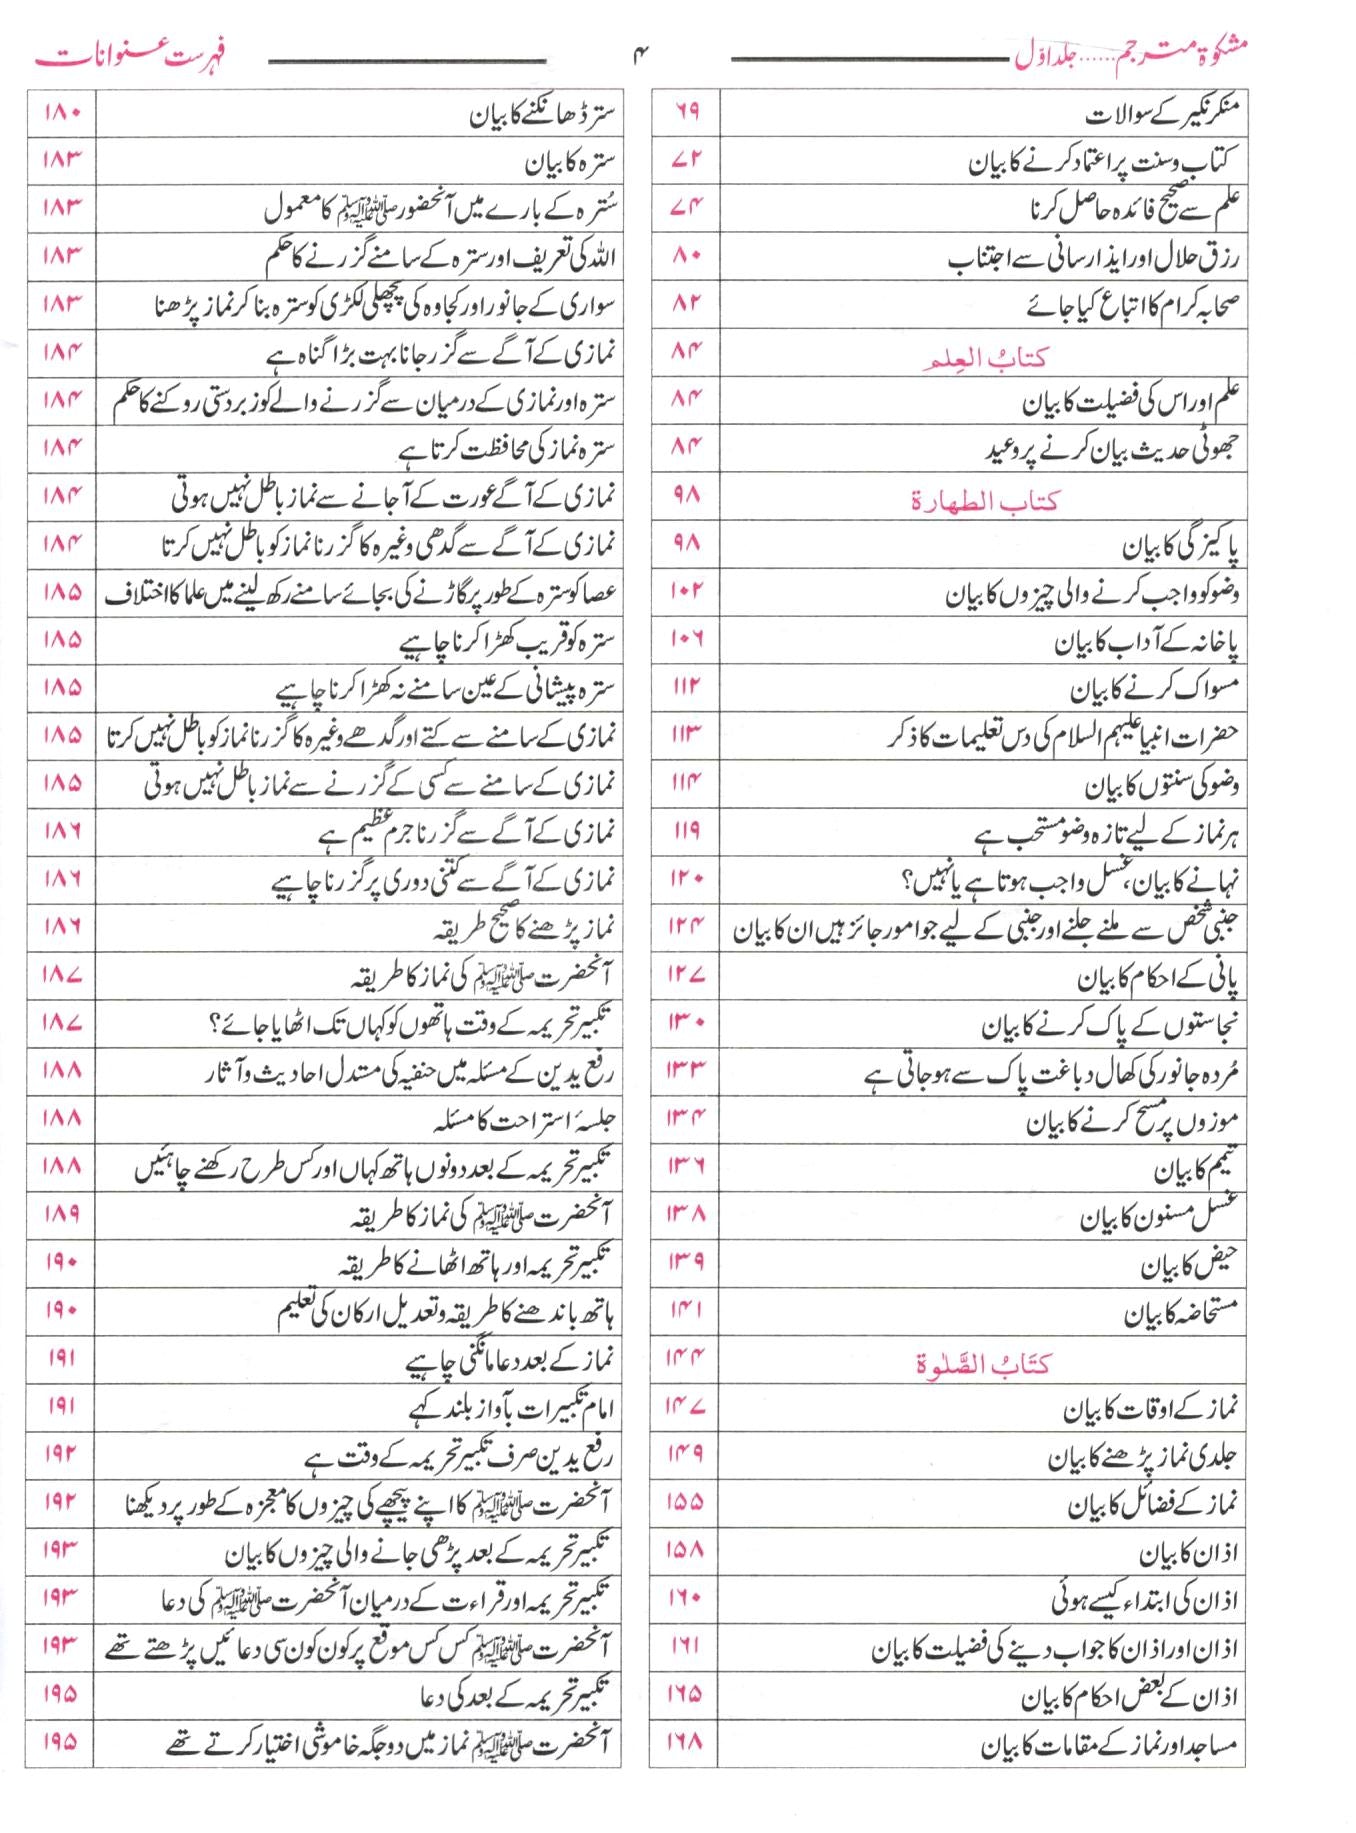 مشکوٰۃ مترجم......جلد اوّل ۴ فہرست عنوانات
منکر نکیر کے سوالات ۶۹
کتاب وسنت پر اعتماد کرنے کا بیان ۷۲
علم سے صحیح فائدہ حاصل کرنا ۷۴
رزق حلال اور ایذا رسانی سے اجتناب ۸۰
صحابہ کرام کا اتباع کیا جائے ۸۲
کتابُ العِلم ۸۴
علم اور اس کی فضیلت کا بیان ۸۴
جھوٹی حدیث بیان کرنے پر وعید ۸۴
کتاب الطهارة ۹۸
پاکیزگی کا بیان ۹۸
وضو کو واجب کرنے والی چیزوں کا بیان ۱۰۲
پاخانہ کے آداب کا بیان ۱۰۶
مسواک کرنے کا بیان ۱۱۲
حضرات انبیا علیہم السلام کی دس تعلیمات کا ذکر ۱۱۳
وضو کی سنتوں کا بیان ۱۱۴
ہر نماز کے لیے تازہ وضو مستحب ہے ۱۱۹
نہانے کا بیان، غسل واجب ہوتا ہے یا نہیں؟ ۱۲۰
جنبی شخص سے ملنے جلنے اور جنبی کے لیے جو امور جائز ہیں ان کا بیان ۱۲۴
پانی کے احکام کا بیان ۱۲۷
نجاستوں کے پاک کرنے کا بیان ۱۳۰
مُردہ جانور کی کھال دباغت پاک سے ہوجاتی ہے ۱۳۳
موزوں پر مسح کرنے کا بیان ۱۳۴
تیمم کا بیان ۱۳۶
غسل مسنون کا بیان ۱۳۸
حیض کا بیان ۱۳۹
مستحاضہ کا بیان ۱۴۱
کتَابُ الصَّلٰوة ۱۴۴
نماز کے اوقات کا بیان ۱۴۷
جلدی نماز پڑھنے کا بیان ۱۴۹
نماز کے فضائل کا بیان ۱۵۵
اذان کا بیان ۱۵۸
اذان کی ابتداء کیسے ہوئی ۱۶۰
اذان اور اذان کا جواب دینے کی فضیلت کا بیان ۱۶۱
اذان کے بعض احکام کا بیان ۱۶۵
مساجد اور نماز کے مقامات کا بیان ۱۶۸
ستر ڈھانکنے کا بیان ۱۸۰
سترہ کا بیان ۱۸۳
سُترہ کے بارے میں آنحضور ﷺ کا معمول ۱۸۳
اللہ کی تعریف اور سترہ کے سامنے گزرنے کا حکم ۱۸۳
سواری کے جانور اور کجاوہ کی پچھلی لکڑی کو سترہ بنا کر نماز پڑھنا ۱۸۳
نمازی کے آگے سے گزر جانا بہت بڑا گناہ ہے ۱۸۴
سترہ اور نمازی کے درمیان سے گزرنے والے کو زبردستی روکنے کا حکم ۱۸۴
سترہ نماز کی محافظت کرتا ہے ۱۸۴
نمازی کے آگے عورت کے آجانے سے نماز باطل نہیں ہوتی ۱۸۴
نمازی کے آگے سے گدھی وغیرہ کا گزرنا نماز کو باطل نہیں کرتا ۱۸۴
عصا کو سترہ کے طور پر گاڑنے کی بجائے سامنے رکھ لینے میں علما کا اختلاف ۱۸۵
سترہ کو قریب کھڑا کرنا چاہیے ۱۸۵
سترہ پیشانی کے عین سامنے نہ کھڑا کرنا چاہیے ۱۸۵
نمازی کے سامنے سے کتے اور گدھے وغیرہ کا گزرنا نماز کو باطل نہیں کرتا ۱۸۵
نمازی کے سامنے سے کسی کے گزرنے سے نماز باطل نہیں ہوتی ۱۸۵
نمازی کے آگے سے گزرنا جرم عظیم ہے ۱۸۶
نمازی کے آگے سے کتنی دوری پر گزرنا چاہیے ۱۸۶
نماز پڑھنے کا صحیح طریقہ ۱۸۶
آنحضرت ﷺ کی نماز کا طریقہ ۱۸۷
تکبیر تحریمہ کے وقت ہاتھوں کو کہاں تک اٹھایا جائے؟ ۱۸۷
رفع یدین کے مسئلہ میں حنفیہ کی مستدل احادیث وآثار ۱۸۸
جلسۂ استراحت کا مسئلہ ۱۸۸
تکبیر تحریمہ کے بعد دونوں ہاتھ کہاں اور کس طرح رکھنے چاہئیں ۱۸۸
آنحضرت ﷺ کی نماز کا طریقہ ۱۸۹
تکبیر تحریمہ اور ہاتھ اٹھانے کا طریقہ ۱۹۰
ہاتھ باندھنے کا طریقہ وتعدیل ارکان کی تعلیم ۱۹۰
نماز کے بعد دعا مانگنی چاہیے ۱۹۱
امام تکبیرات بآواز بلند کہے ۱۹۱
رفع یدین صرف تکبیر تحریمہ کے وقت ہے ۱۹۲
آنحضرت ﷺ کا اپنے پیچھے کی چیزوں کا معجزہ کے طور پر دیکھنا ۱۹۲
تکبیر تحریمہ کے بعد پڑھی جانے والی چیزوں کا بیان ۱۹۳
تکبیر تحریمہ اور قراءت کے درمیان آنحضرت ﷺ کی دعا ۱۹۳
آنحضرت ﷺ کس کس موقع پر کون کون سی دعائیں پڑھتے تھے ۱۹۳
تکبیر تحریمہ کے بعد کی دعا ۱۹۵
آنحضرت ﷺ نماز میں دو جگہ خاموشی اختیار کرتے تھے ۱۹۵